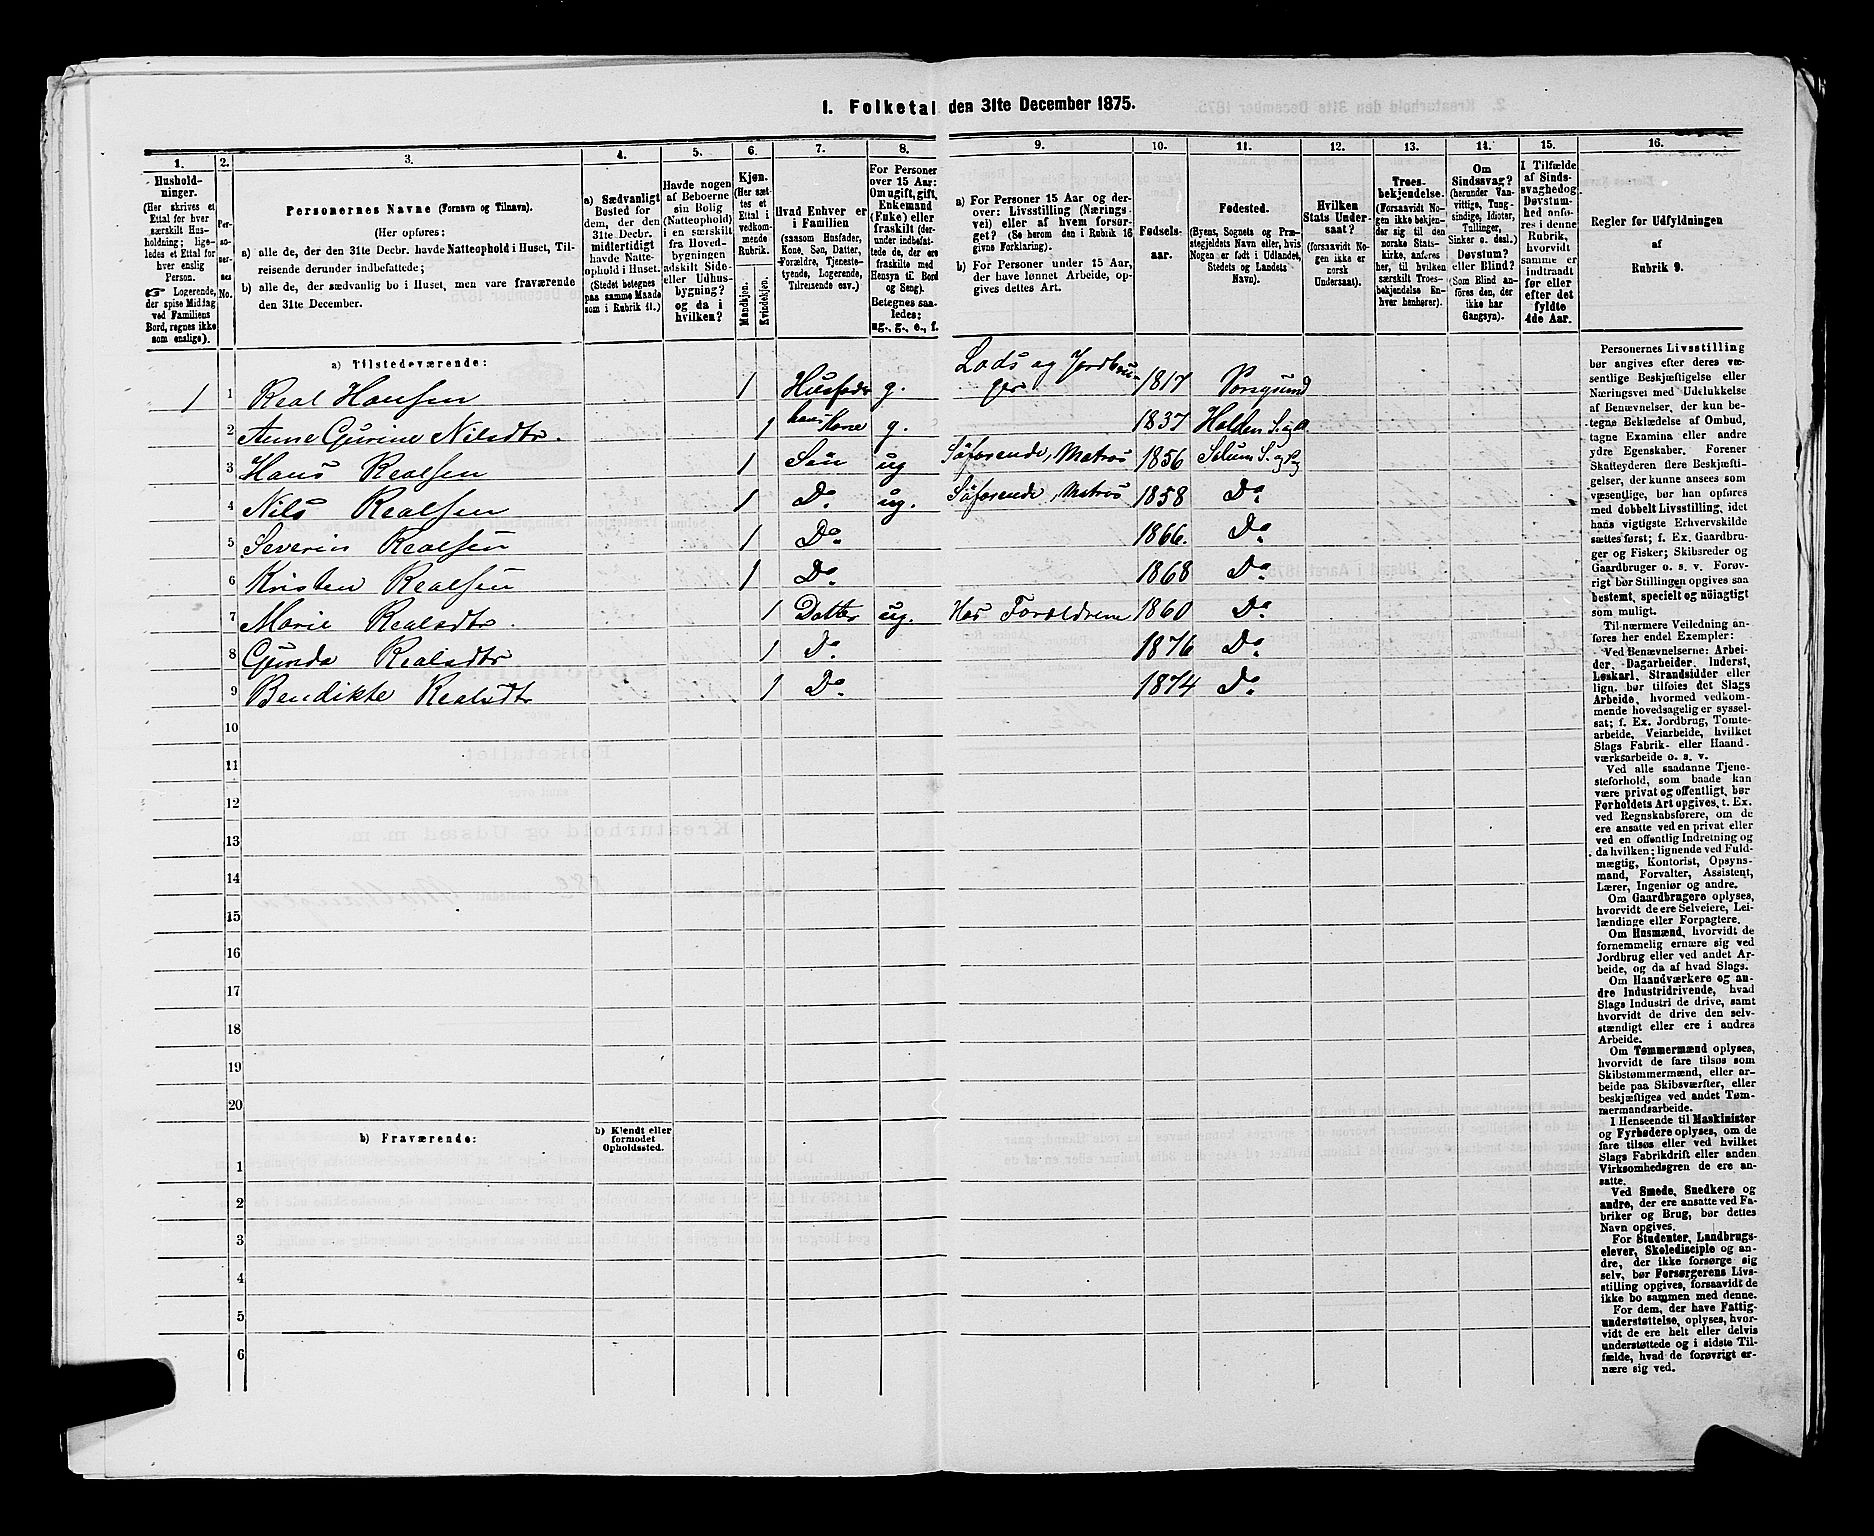 1. Folketal den 31te December 1875.
1. 2. 3. 4. 5. 6. 7. 8. 9. 10. 11. 12. 13. 14. 15. 16.
Hushold-
ninger.
(Her skrives et
Ettal for hver
særskilt Hus-
holdning; lige-
ledes et Ettal for
hver enslig
Person.
☞ Logerende,
der spise Middag
ved Familiens
Bord, regnes ikke
som enslige).
Per-
so-
ner-
nes
No.
Personernes Navne (Fornavn og Tilnavn).
(Her opføres:
a) alle de, der den 31te Decbr. havde Natteophold i Huset, Til-
reisende derunder indbefattede;
b) alle de, der sædvanlig bo i Huset, men vare fraværende
den 31te December.
a) Sædvanligt
Bosted for
dem, der den
31te Decbr.
midlertidigt
havde Natte-
ophold i Huset.
(Stedet betegnes
paa samme Maade
som i Rubrik 11.)
Havde nogen
af Beboerne
sin Bolig
(Natteophold)
i en særskilt
fra Hoved-
bygningen
adskilt Side-
eller Udhus-
bygning?
og da i
hvilken?
Kjøn.
(Her sæt-
tes et
Ettal i
vedkom-
mende
Rubrik.
Mandkjøn.
Kvindekjøn.
Hvad Enhver er
i Familien
(saasom Husfader,
Kone, Søn, Datter,
Forældre, Tjeneste-
tyende, Logerende,
Tilreisende osv.)
For Personer
over 15 Aar:
Om ugift, gift,
Enkemand
(Enke) eller
fraskilt (der-
under indbefat-
tede de, der ere
fraskilte med
Hensyn til Bord
og Seng).
Betegnes saa-
ledes:
ug., g., e., f.
a) For Personer 15 Aar og der-
over: Livsstilling (Nærings-
vei) eller af hvem forsør-
get? (Se herom den i Rubrik 16
givne Forklaring).
b) For Personer under 15 Aar,
der have lønnet Arbeide, op-
gives dettes Art.
Fødsels-
aar.
Fødested.
(Byens, Sognets og Præ-
stegjeldets Navn eller, hvis
Nogen er født i Udlandet,
Stedets og Landets
Navn).
Hvilken
Stats Under-
saat?
(forsaavidt No-
gen ikke er
norsk
Undersaat).
Troes-
bekjendelse.
(Forsaavidt No-
gen ikke bekjen-
der sig til den
norske Stats-
kirke, anføres
her, til hvilken
særskilt Troes-
bekjendelse En-
hver henhører).
Om
Sindssvag?
(herunder Van-
vittige, Tung-
sindige, Idioter,
Tullinger,
Sinker o. desl.)
Døvstum?
eller Blind?
(Som Blind an-
føres den, der
ikke har
Gangsyn).
I Tilfælde
af Sinds-
svaghed og
Døvstum-
hed anfø-
res i denne
Rubrik,
hvorvidt
samme er
indtraadt
før eller
efter det
fyldte
4de Aar.
Regler for Udfyldningen
af
Rubrik 9.
a) Tilstedeværende:
1 1 Real Hansen 1 Husfader g. Lods og Jordbru-
ger 1817 Porsgrund
2 Anne Gurine Nilsdtr. 1 hans Kone g. 1837 Holden S. og P.
3 Hans Realsen 1 Søn ug Søfarende, Matros 1856 Solum S. og P.
4 Nils Realsen 1 Do ug. Søfarende, Matros 1858 Do
5 Severin Realsen 1 Do 1866. Do
6 Kristen Realsen 1 Do 1868 Do
7 Marie Realsdtr. 1 Datter ug. Hos Foreldrene 1860 Do
8 Gunda Realsdtr 1 Do 1876 Do
9 Bendikte Realsdtr 1 Do 1874 Do
10
11
12
13
14
15
16
17
18
19
20
b) Fraværende:
b) Kjendt eller
formodet
Opholdssted.
1
2
3
4
5
6
Personernes Livsstilling
bør angives efter deres væ-
sentlige Beskjæftigelse eller
Næringsvei med Udelukkelse
af Benævnelser, der kun be-
tegne Beklædelse af Ombud,
tagne Examina eller andre
ydre Egenskaber. Forener
Skatteyderen flere Beskjæfti-
gelser, der kunne ansees som
væsentlige, bør han opføres
med dobbelt Livsstilling, idet
hans vigtigste Erhvervskilde
sættes først; f. Ex. Gaardbru-
ger og Fisker; Skibsreder og
Gaardbruger o. s. v. Forøv-
rigt bør Stillingen opgives saa
bestemt, specielt og nøiagtigt
som muligt.
Til nærmere Veiledning an-
føres her endel Exempler:
Ved Benævnelserne: Arbei-
der, Dagarbeider, Inderst,
Løskarl, Strandsidder eller
lign. bør tilføies det Slags
Arbeide, hvormed vedkom-
mende hovedsagelig er syssel-
sat; f. Ex. Jordbrug, Tomte-
arbeide, Veiarbeide, hvilket
Slags Fabrik- eller Haand-
værksarbeide o. s. v.
Ved alle saadanne Tjene-
steforhold, som baade kan
være privat og offentligt, bør
Forholdets Art opgives, t. Ex.
ved Regnskabsførere, om de
ere ansatte ved en privat eller
ved en offentlig Indretning og
da hvilken; lignende ved Fuld-
mægtig, Kontorist, Opsyns-
mand, Forvalter, Assistent,
Lærer, Ingeniør og andre.
Om Gaardbrugere oplyses,
hvorvidt de ere Selveiere, Lei-
lændinge eller Forpagtere.
Om Husmænd, hvorvidt de
fornemmelig ernære sig ved
Jordbrug eller ved andet Ar-
beide, og da af hvad Slags.
Om Haandværkere og an-
dre Industridrivende, hvad
Slags Industri de drive, samt
hvorvidt de drive den selv-
stændigt eller ere i andres
Arbeide.
Om Tømmermænd oplyses,
hvorvidt de fare tilsøs som
Skibstømmermænd, eller ar-
beide paa Skibsværfter, eller
beskjæftiges ved andet Tøm-
mermandsarbeide.
I Henseende til Maskinister
og Fyrbødere oplyses, om de
fare tilsøs eller ved hvilket
Slags Fabrikdrift eller anden
Virksomhedsgren de ere an-
satte.
Ved Smede, Snedkere og
andre, der ere ansatte ved Fa-
briker og Brug, bør dettes
Navn opgives.
For Studenter, Landbrugs-
elever, Skoledisciple og an-
dre, der ikke forsørge sig
selv, bør Forsørgerens Livs-
stilling opgives, forsaavidt de
ikke bo sammen med denne.
For dem, der have Fattig-
understøttelse, oplyses, hvor-
vidt de ere helt eller delvis
understøttede og i sidste Til-
fælde, hvad de forøvrigt er-
nære sig ved.